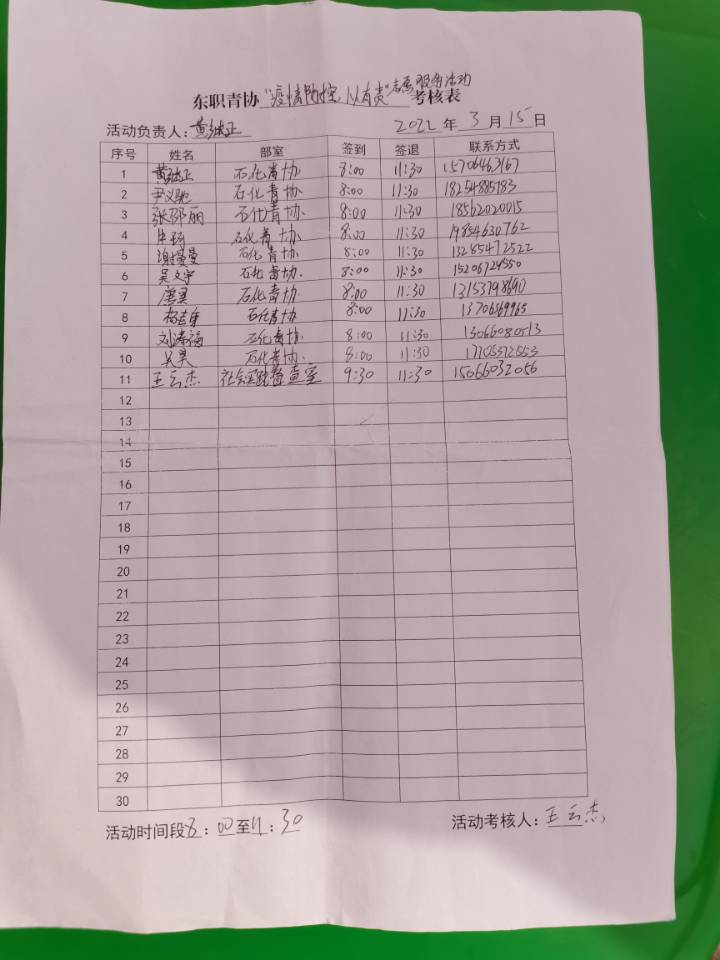 东职青协“疫情防控,以有责”志愿服务活动考核表
活动负责人:黄继正 2022年3月15日
序号 姓名 部室 签到 签退 联系方式
1 黄继正 石化青协 8:00 11:30 15706463167
2 尹义驰 石化青协 8:00 11:30 18254885783
3 张邵丽 石化青协 8:00 11:30 18562020015
4 石化青协 8:00 11:30 19854630762
5 谢曼曼 石化青协 8:00 11:30 13285472522
6 吴文宇 石化青协 8:00 11:30 15206724550
7 唐昊 石化青协 8:00 11:30 13153798690
8 石化青协 8:00 11:30 13706369965
9 刘涛福 石化青协 8:00 11:30 13066080513
10 吴昊 石化青协 8:00 11:30
11 王云杰 社会实践督查室 9:30 11:30 15066032056
12
13
14
15
16
17
18
19
20
21
22
23
24
25
26
27
28
29
30
活动时间段8:00至11:30 活动考核人:王云杰